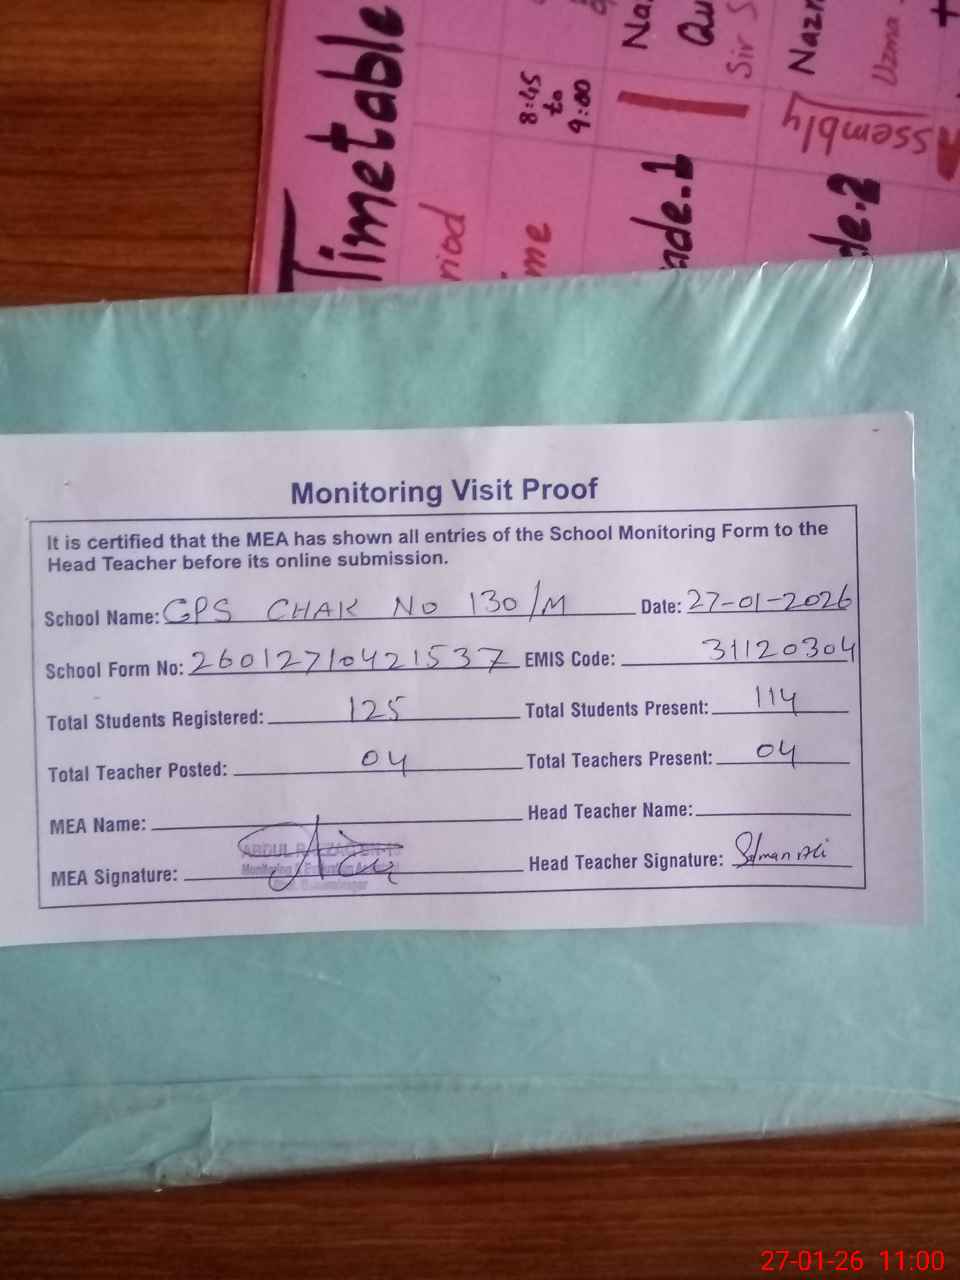 Timetable
riod
me
8:45
to
9:00
Na
Qu
Sir S
ade.1
Nazr
Uzma
ssembly
de.2
Monitoring Visit Proof
It is certified that the MEA has shown all entries of the School Monitoring Form to the
Head Teacher before its online submission.
School Name: GPS CHAK NO 130/M Date: 27-01-2026
School Form No: 26012710421537 EMIS Code: 31120304
Total Students Registered: 125 Total Students Present: 114
Total Teacher Posted: 04 Total Teachers Present: 04
MEA Name: Head Teacher Name:
ABDUL RAZZAQ
Monitoring & Evaluation
MEA Signature: Head Teacher Signature: Salman Ali
27-01-26 11:00